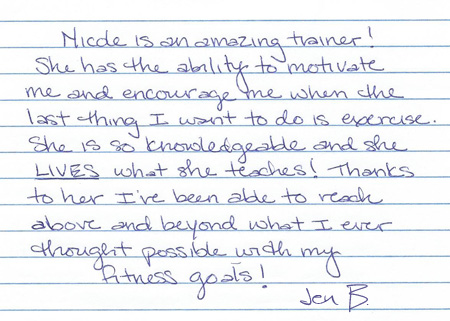 Nicole is an amazing trainer!
She has the ability to motivate
me and encourage me when the
last thing I want to do is exercise.
She is so knowledgeable and she
LIVES what she teaches! Thanks
to her I've been able to reach
above and beyond what I ever
thought possible with my
fitness goals!
Jen B.